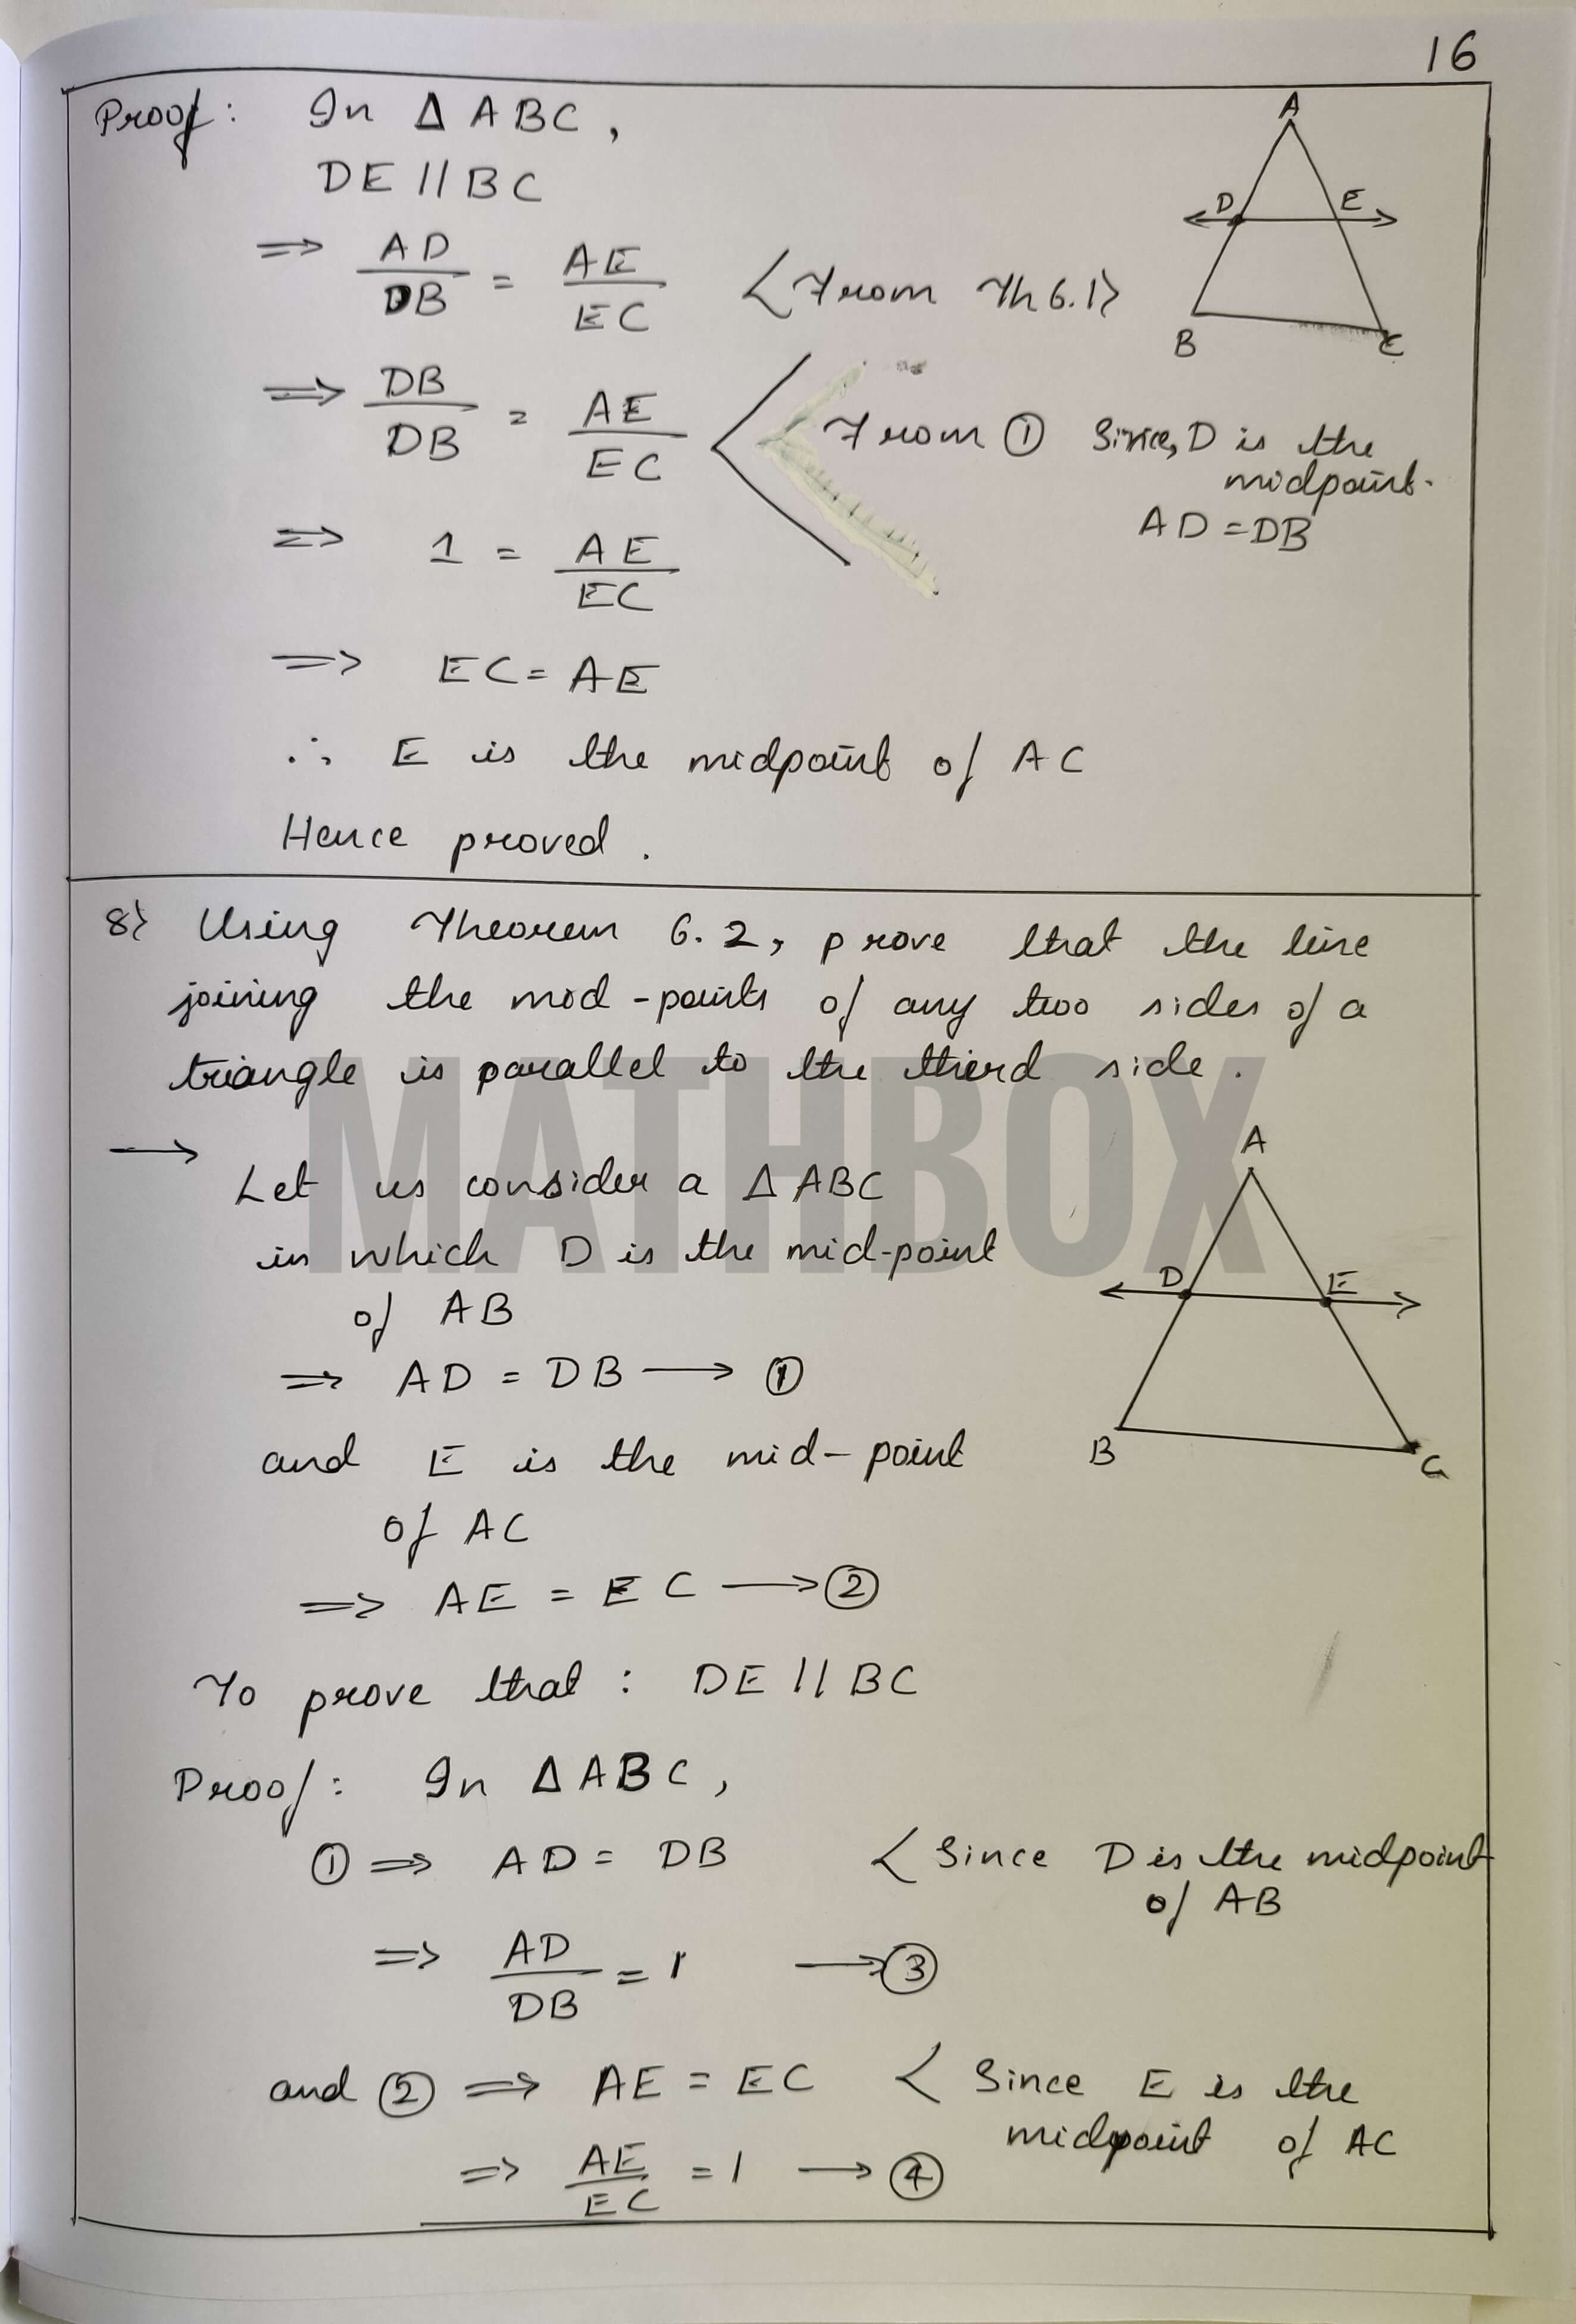 16
Proof : In Δ ABC ,
DE || BC
⇒ AD/DB = AE/EC < From Th 6.1>
⇒ DB/DB = AE/EC < From ① Since, D is the
midpoint.
AD = DB
⇒ 1 = AE/EC
⇒ EC = AE
∴ E is the midpoint of AC
Hence proved .
A
D E
B C
8> Using Theorem 6.2, prove that the line
joining the mid-points of any two sides of a
triangle is parallel to the third side .
MATHBOX
→ Let us consider a Δ ABC
in which D is the mid-point
of AB
⇒ AD = DB → ①
and E is the mid-point
of AC
⇒ AE = EC → ②
A
D E
B C
To prove that : DE || BC
Proof : In Δ ABC ,
① ⇒ AD = DB < Since D is the midpoint
of AB
⇒ AD/DB = 1 → ③
and ② ⇒ AE = EC < Since E is the
midpoint of AC
⇒ AE/EC = 1 → ④